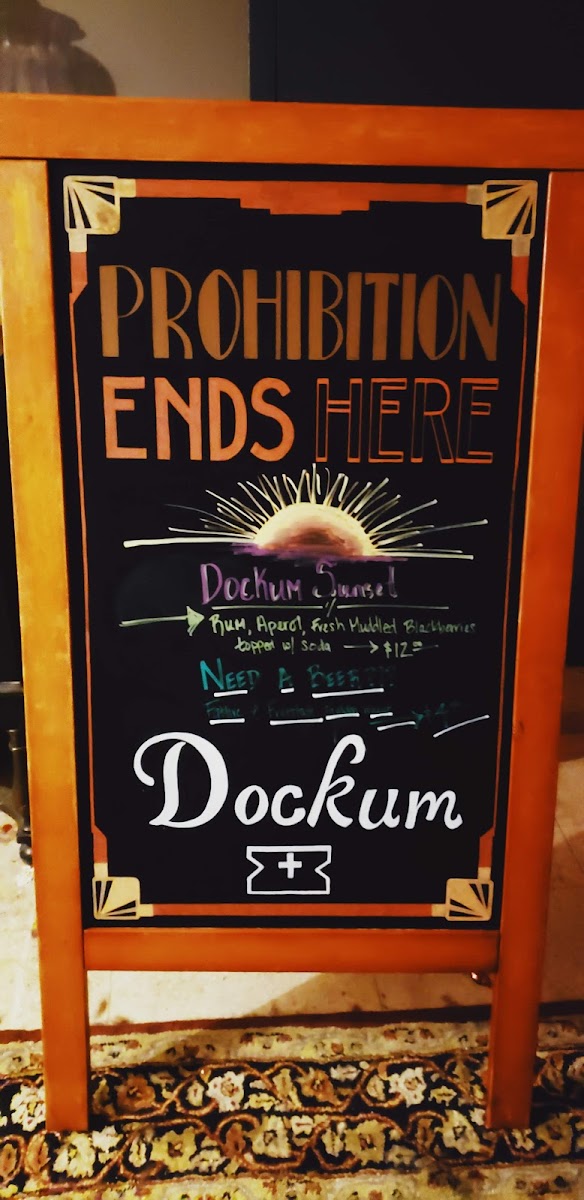 PROHIBITION
ENDS HERE
Dockum Sunset
Rum, Aperol, Fresh Muddled Blackberries
topped w/ Soda → $12
NEED A BEER
Dockum